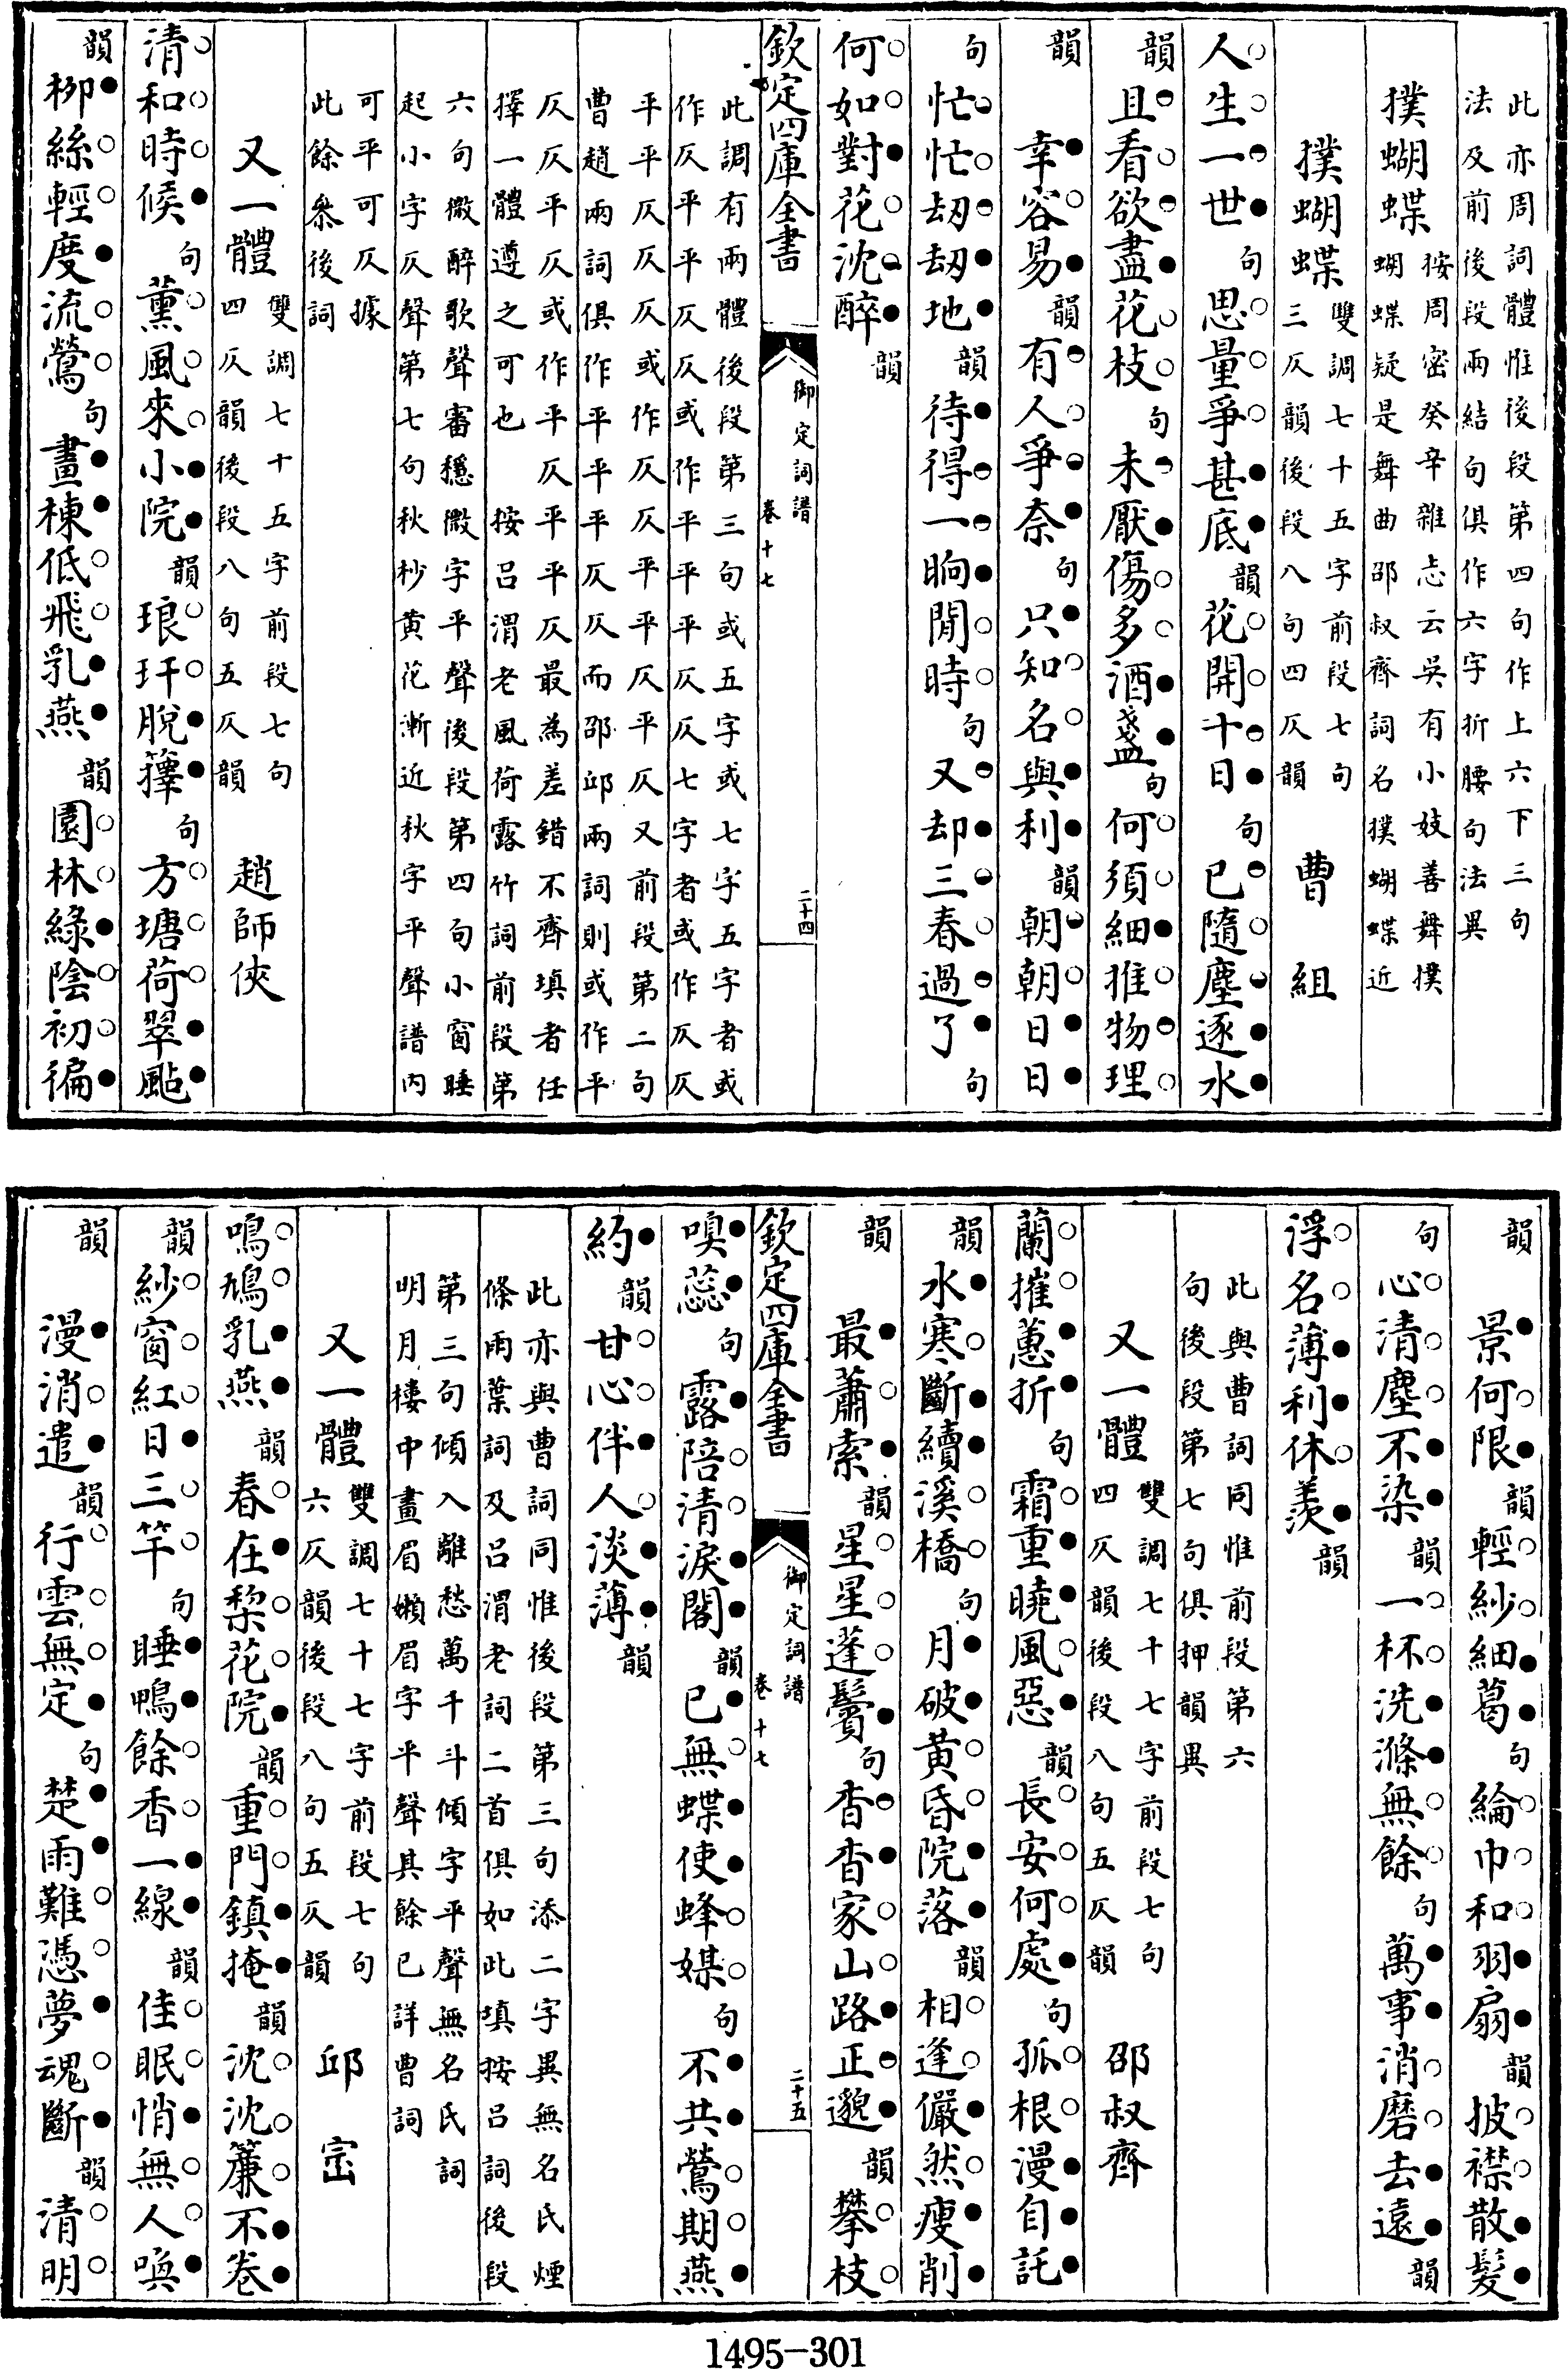 此亦周詞體惟後段第四句作上六下三句
法及前後段兩結句俱作六字折腰句法異
撲蝴蝶
按周密癸辛雜志云吳有小妓善舞撲
蝴蝶疑是舞曲邵叔齊詞名撲蝴蝶近
撲蝴蝶
雙調七十五字前段七句
三仄韻後段八句四仄韻
曹組
人生一世句思量爭甚底韻花開十日句已隨塵逐水
韻且看欲盡花枝句未厭傷多酒盞句何須細推物理
韻幸容易韻有人爭奈句只知名與利韻朝朝日日
句忙忙刼刼地韻待得一晌閒時句又却三春過了句
何如對花沈醉韻
欽定四庫全書
御定詞譜
卷十七
二十四
此調有兩體後段第三句或五字或七字五字者或
作仄平平仄仄或作平平平仄七字者或作仄仄
平平仄仄仄或作仄仄平平仄平仄又前段第二句
曹趙兩詞俱作平平平仄仄而邵邱兩詞則或作平
仄仄平仄或作平仄平平仄最為差錯不齊填者任
擇一體遵之可也按呂渭老風荷露竹詞前段第
六句微醉歌聲審穩微字平聲後段第四句小窗睡
起小字仄聲第七句秋杪黃花漸近秋字平聲譜內
可平可仄據
此餘叅後詞
又一體
雙調七十五字前段七句
四仄韻後段八句五仄韻
趙師俠
清和時候句薰風來小院韻琅玕脫籜句方塘荷翠颭
韻柳絲輕度流鶯句畫棟低飛乳燕韻園林綠陰初徧
韻景何限韻輕紗細葛句綸巾和羽扇韻披襟散髮
句心清塵不染韻一杯洗滌無餘句萬事消磨去遠韻
浮名薄利休羨韻
此與曹詞同惟前段第六
句後段第七句俱押韻異
又一體
雙調七十七字前段七句
四仄韻後段八句五仄韻
邵叔齊
蘭摧蕙折句霜重曉風惡韻長安何處句孤根漫自託
韻水寒斷續溪橋句月破黃昏院落韻相逢儼然瘦削
韻最蕭索韻星星蓬鬢句杳杳家山路正邈韻攀枝
欽定四庫全書
御定詞譜
卷十七
二十五
嗅蕊句露陪清淚閣韻已無蝶使蜂媒句不共鶯期燕
約韻甘心伴人淡薄韻
此亦與曹詞同惟後段第三句添二字異無名氏煙
條雨葉詞及呂渭老詞二首俱如此填按呂詞後段
第三句傾入離愁萬千斗傾字平聲無名氏詞
明月樓中畫眉嬾眉字平聲其餘已詳曹詞
又一體
雙調七十七字前段七句
六仄韻後段八句五仄韻
邱崈
鳴鳩乳燕韻春在棃花院韻重門鎮掩韻沈沈簾不卷
韻紗窗紅日三竿句睡鴨餘香一線韻佳眠悄無人喚
韻漫消遣韻行雲無定句楚雨難憑夢魂斷韻清明
1495-301